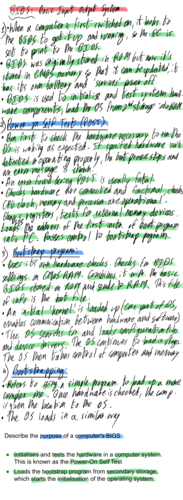 BIOS - Basic Input Output System
1) When a computer is first switched on, it looks to
the BIOS to get it up and running, so the PC is
set to point to the BIOS.
• BIOS was originally stored in ROM but now it's
stored in CMOS memory so that it can be updated, it
has its own battery and survives power off.
• BIOS is used to initialise and test system hardware
components, load the OS from a storage device
2) Power on Self Test (POST)
• Run first to check the hardware necessary to run the
OS is working as expected. If required hardware isn't
detected or operating properly, the boot process stops and
an error message is shown.
• An error found during POST is usually fatal.
• Checks hardware are connected and functional, checks
CPU clock, memory and processor are operational.
• Checks registers, tests for external memory devices.
• Loads the address of the first instr. of boot program
into PC. Passes control to bootstrap program.
3) Bootstrap program
• POST: hardware checks. Checks for BIOS
settings in CMOS RAM. Combines it with the basic
BIOS stored in ROM and sends to RAM. This file
of info is the boot file
• An initial 'kernel' is loaded up (core part of OS,
enables communication between hardware and software)
• The OS searches for and loads configuration files
and device drivers. The OS continues to load in stages
The OS then takes control of computer and memory
4) Bootstrapping
• Refers to using a simple program to load up a more
complex one. Once hardware is checked, the comp.
is given the location to the OS.
• The OS loads in a similar way
Describe the purpose of a computer's BIOS.
• Initialises and tests the hardware in a computer system.
This is known as the Power-On Self-Test
• Loads the bootstrap program from secondary storage,
which starts the initialisation of the operating system.